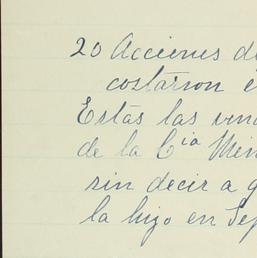 20 Acciones d
costaron
Estas las ven
de la Cia Men
sin decir a q
la hizo en Sep